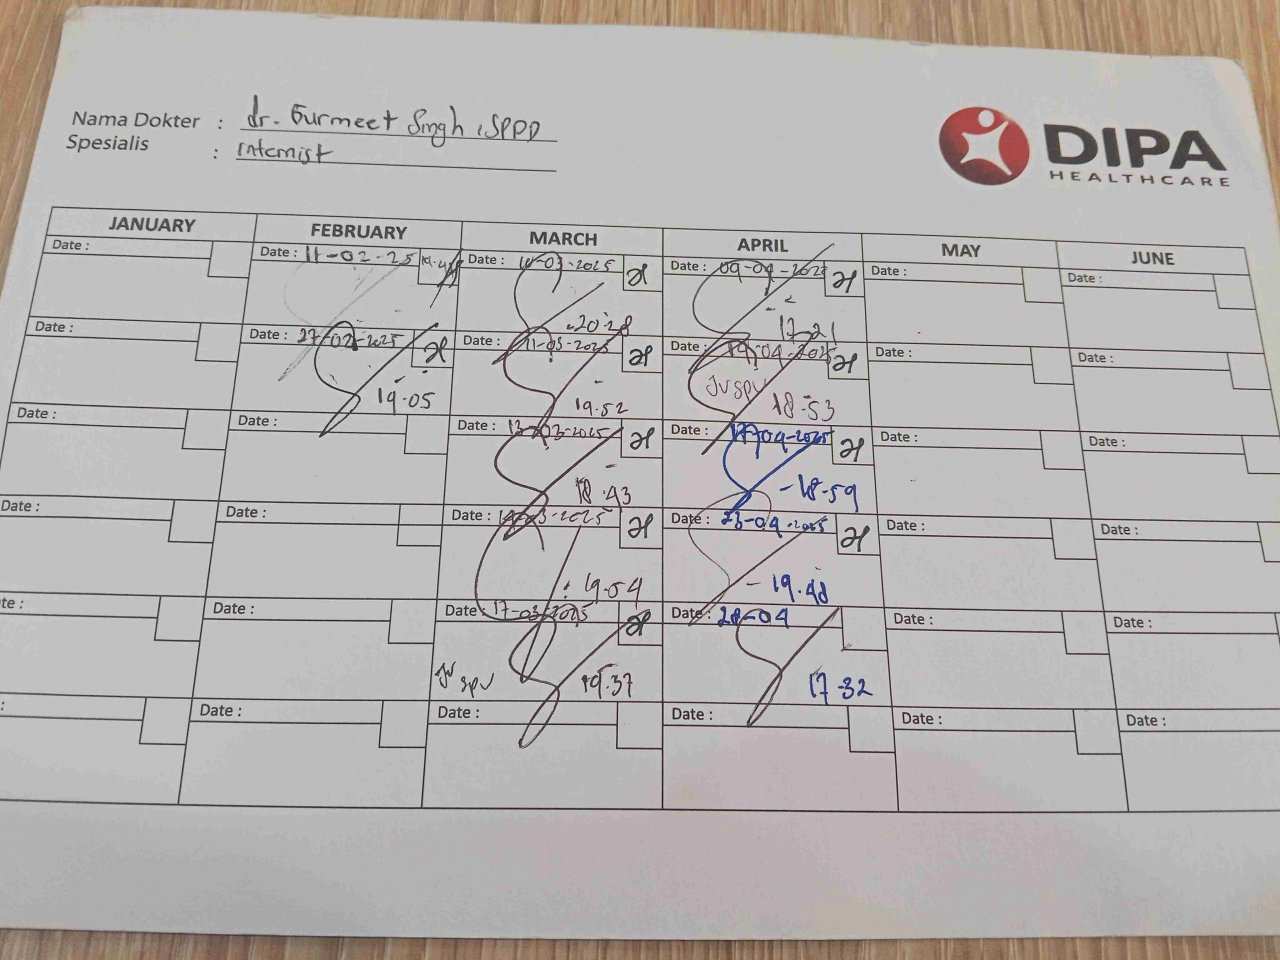 Nama Dokter : dr. Gurmeet Singh, SPPD
Spesialis : Internist
DIPA
HEALTHCARE
JANUARY FEBRUARY MARCH APRIL MAY JUNE
Date : Date : 11-02-25 Date : -03-2025 Date : 09-04-2025 Date : Date :
20.28 17.21
Date : Date : 27-02-2025 Date : 11-03-2025 Date : -04-2025 Date : Date :
19.05 19.52 Jv spv 18.53
Date : Date : Date : 13-03-2025 Date : -04-2025 Date : Date :
18.43 18.59
Date : Date : Date : -03-2025 Date : 23-04-2025 Date : Date :
19.54 19.48
te : Date : Date : 17-03-2025 Date : 28-04 Date : Date :
Jv spv 19.37 17.32
: Date : Date : Date : Date : Date :